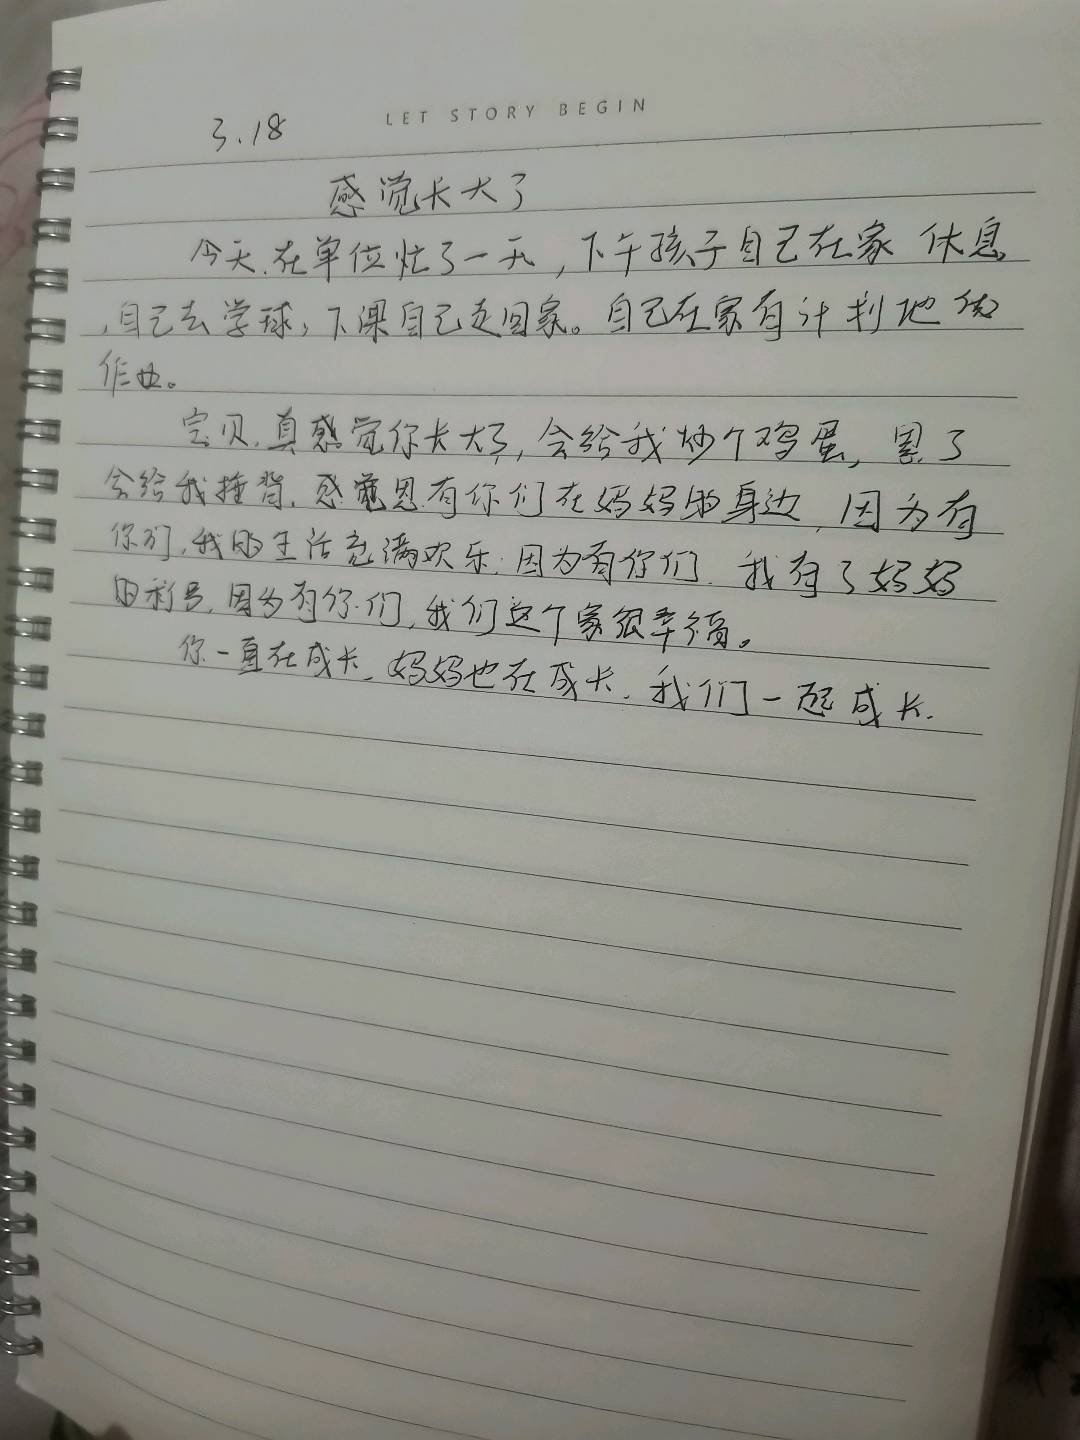 LET STORY BEGIN
3.18
感觉长大了
今天.在单位忙了一天,下午孩子自己在家休息
,自己去学球,下课自己走回家。自己在家有计划地做
作业。
宝贝.真感觉你长大了,会给我炒个鸡蛋,累了
会给我捶背.感恩有你们在妈妈的身边,因为有
你们,我的生活充满欢乐;因为有你们.我有了妈妈
的称号,因为有你们,我们这个家很幸福。
你一直在成长.妈妈也在成长.我们一起成长.